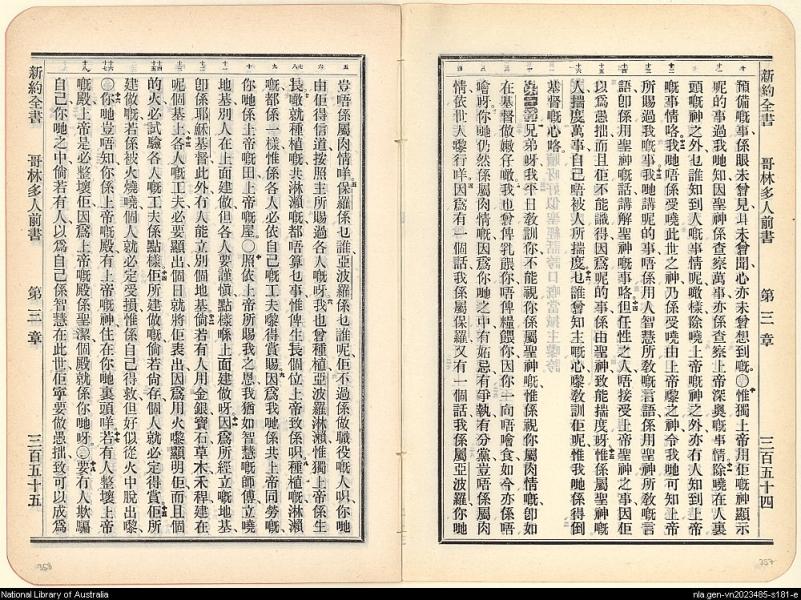 新約全書　哥林多人前書　第三章　三百五十四
預備嘅事係眼未曾見耳未曾聞心亦未曾想到嘅〇惟獨上帝用佢嘅神顯示
呢的事過我哋知因聖神係查察萬事亦係查察上帝深奧嘅事情除嘵在人裏
頭嘅神之外乜誰知到人嘅事情呢噉樣除嘵上帝嘅神之外亦有人知到上帝
嘅事情咯我哋唔係受嘵此世之神乃係受嘵由上帝嚟之神令我哋可知上帝
所賜過我嘅事我哋講呢的事唔係用人智慧所敎嘅言語係用聖神所敎嘅言
語卽係用聖神嘅話講解聖神嘅事咯但任性之人唔接受上帝聖神之事因佢
以爲愚拙而且佢不能識得因爲呢的事係由聖神致能揣度呀惟係屬聖神嘅
人揣度萬事自己唔被人所揣度乜誰曾知主嘅心嚟敎訓佢呢惟我哋係得倒
基督嘅心咯
兄弟呀我平日敎訓你不能視你係屬聖神嘅惟係視你屬肉情嘅卽如
在基督做嫩仔噉我也曾俾乳餵你唔俾糧餵你因你一向唔噲食如今亦係唔
噲呀你哋仍然係屬肉情嘅因爲你哋之中有妬忌有爭執有分黨豈唔係屬肉
情依世人嚟行咩因爲有一個話我係屬保羅又有一個話我係屬亞波羅你哋
新約全書　哥林多人前書　第三章　三百五十五
豈唔係屬肉情咩保羅係乜誰亞波羅係乜誰呢佢不過係做職役嘅人㖞你哋
由佢得信道按照主所賜過各人嘅呀我也曾種植亞波羅淋灕惟獨上帝係生
長噉就種植嘅共淋灕嘅都唔算乜事惟俾生長個位上帝致係㖞種植嘅淋灕
嘅都係一樣惟係各人必依自己嘅工夫嚟得賞賜因爲我哋係共上帝同勞嘅
你哋係上帝嘅田上帝嘅屋〇照依上帝所賜我之恩我猶如智慧嘅師傅立嘵
地基別人在上面建做但各人要謹愼點樣喺上面建做呀因爲所經立嘅地基
卽係耶穌基督此外冇人能立別個地基倘若有人用金銀寶石草木禾稈建在
呢個基上各人嘅工夫必要顯出個日就將佢表出因爲用火嚟顯明佢而且個
的火必試驗各人嘅工夫係點樣佢所建做嘅倘若尙存個人就必定得賞佢所
建做嘅若係被火燒嘵個人就必定受損惟係自己得救但好似從火中脫出嚟
〇你哋豈唔知你係上帝嘅殿有上帝嘅神住在你哋裏頭咩若有人整壞上帝
嘅殿上帝是必整壞佢因爲上帝嘅殿係聖潔個殿就係你哋呀〇要冇人欺騙
自己你哋之中倘若有人以爲自己係智慧在此世佢寧要做愚拙致可以成爲
358
357
National Library of Australia
nla.gen-vn2023485-s181-e